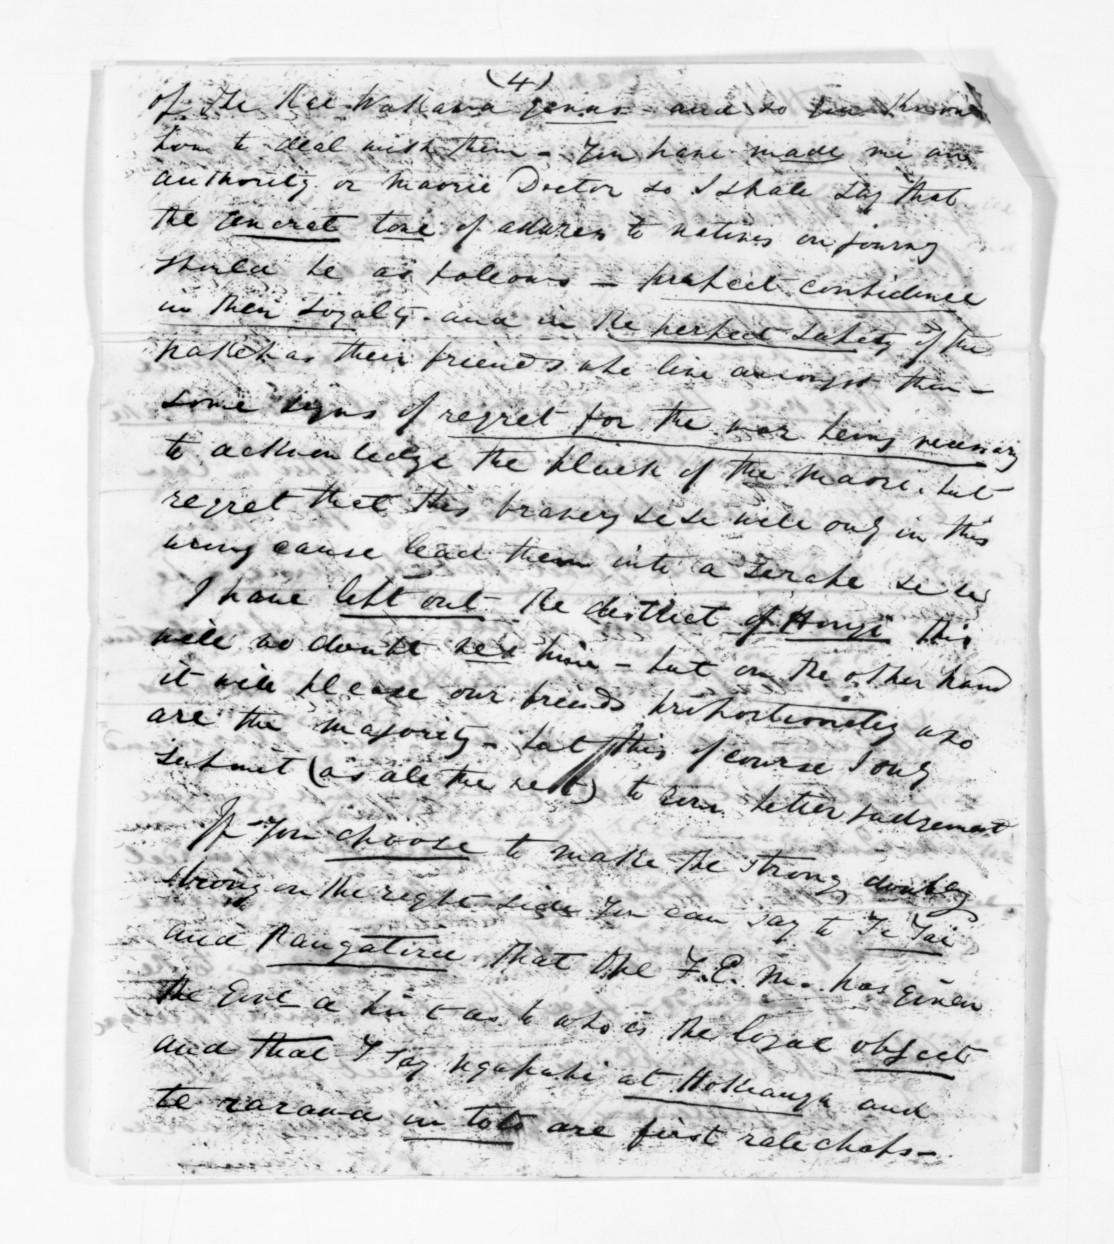 (4)
of The Kee Wakawa genus and so you know
how to deal with them - You have made me an
authority or Maorie Doctor so I shall say that
the general tone of address to natives on journey
should be as follows - perfect confidence
in their Loyalty - and in the perfect safety of the
pakehas their friends who live amongst them -
some signs of regret for the war being necessary
to acknowledge the pluck of the Maori, but
regret that this bravery &c &c will only in this
wrong cause lead them into a scrape &c &c
I have left out the district of Hongi this
will no doubt him - but on the other hand
it will please our friends proportionately who
are the majority - but this of course I only
submit (as all the rest) to your better judgement
If you choose to make the strong doubly
strong on the right side you can say to Te Tai
and Rangatira that the F.E.M. has given
the Govt a hint as to who is the loyal object
and that I say Ngapuhi at Hokianga and
te rarawa in toto are first rate chaps -